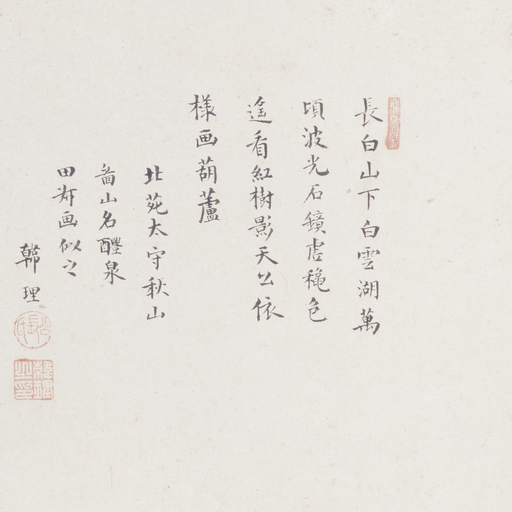 長白山下白雲湖萬
頃波光石鏡虛穐色
遙看紅樹影天公依
樣画葫蘆
北苑太守秋山
山名醴泉
田画似之
理